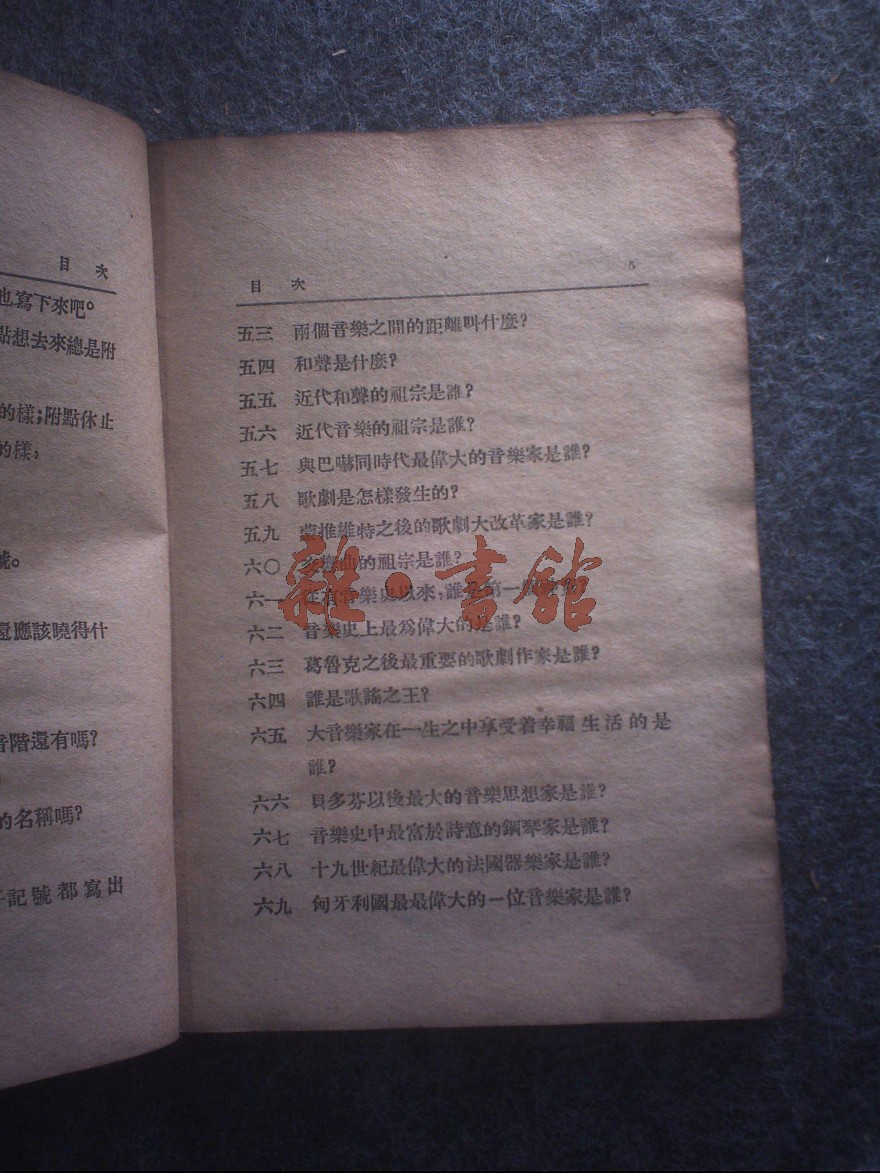 目 次
也寫下來吧。
點想去來總是附
的樣;附點休止
的樣,
號。
還應該曉得什
音階還有嗎?
的名稱嗎?
記號都寫出
目 次 5
五三 兩個音樂之間的距離叫什麼?
五四 和聲是什麼?
五五 近代和聲的祖宗是誰?
五六 近代音樂的祖宗是誰?
五七 與巴嚇同時代最偉大的音樂家是誰?
五八 歌劇是怎樣發生的?
五九 蒙推維特之後的歌劇大改革家是誰?
六〇 交響曲的祖宗是誰?
六一 從有音樂史以來,誰是第一
六二 音樂史上最爲偉大的是誰?
六三 葛魯克之後最重要的歌劇作家是誰?
六四 誰是歌謠之王?
六五 大音樂家在一生之中享受着幸福生活的是
誰?
六六 貝多芬以後最大的音樂思想家是誰?
六七 音樂史中最富於詩意的鋼琴家是誰?
六八 十九世紀最偉大的法國器樂家是誰?
六九 匈牙利國最最偉大的一位音樂家是誰?
雜·書館